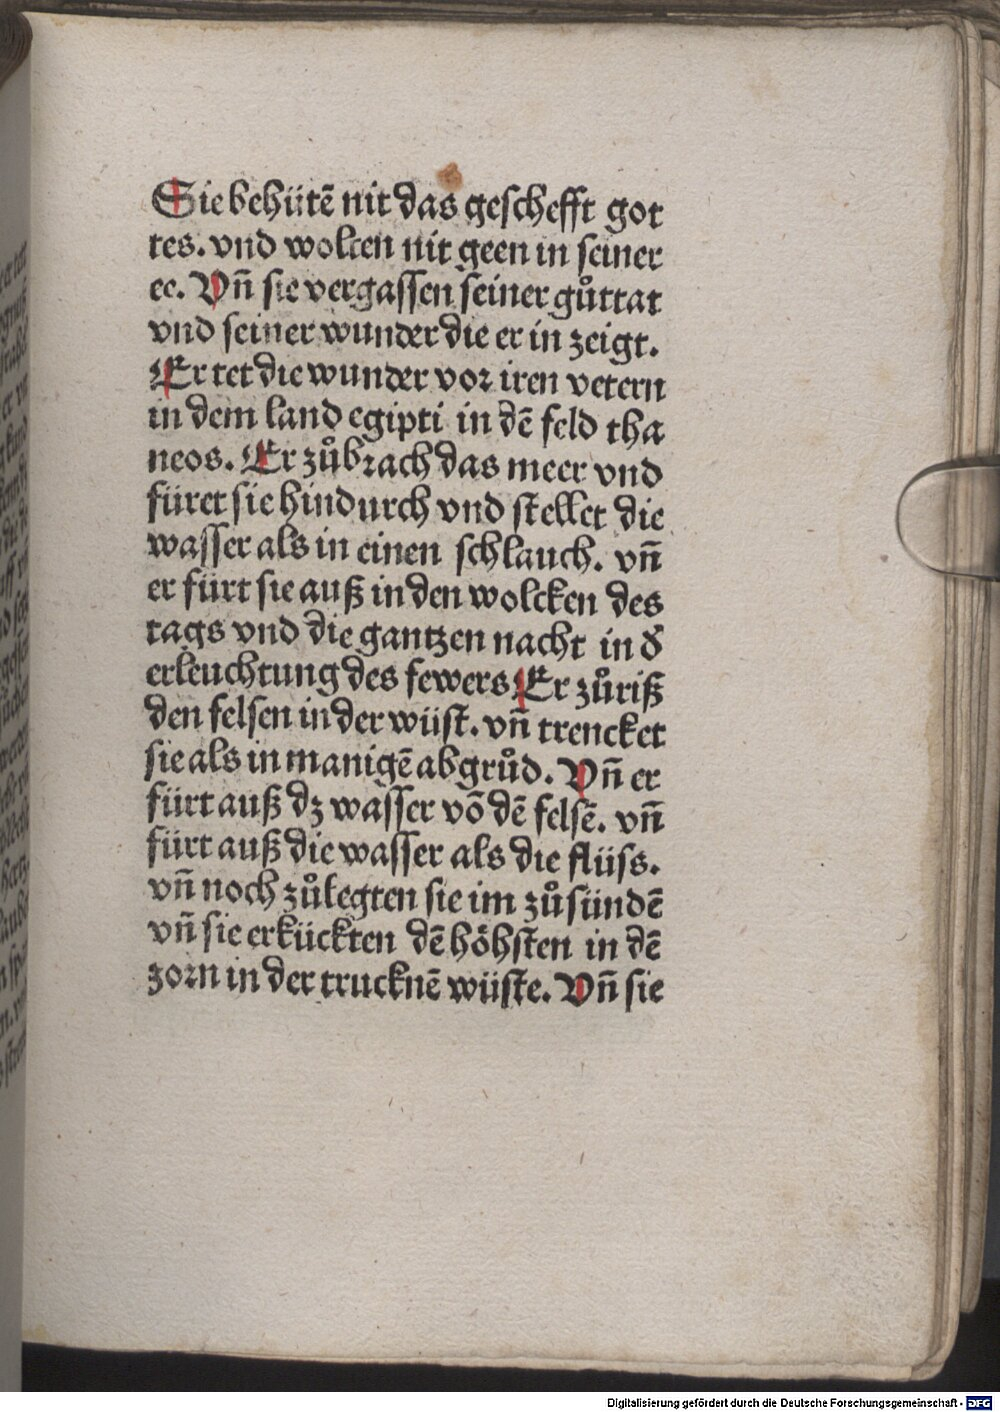 Sie behütē nit das geschefft got
tes. vnd wolten nit geen in seiner
ee. Vñ sie vergassen seiner gůttat
vnd seiner wunder die er in zeigt.
Er tet die wunder vor iren vetern
in dem land egipti in dē feld tha
neos. Er zůbrach das meer vnd
füret sie hindurch vnd stellet die
wasser als in einen schlauch. vñ
er fürt sie auß in den wolcken des
tags vnd die gantzen nacht in d̕
erleuchtung des fewers Er zůriß
den felsen in der wüst. vñ trencket
sie als in manigē abgrůd. Vñ er
fürt auß dz wasser vō dē felsē. vñ
fürt auß die wasser als die flüss.
vñ noch zůlegten sie im zů sündē
vñ sie erkückten dē höhsten in dē
zorn in der trucknē wüste. Vñ sie
Digitalisierung gefördert durch die Deutsche Forschungsgemeinschaft - DFG